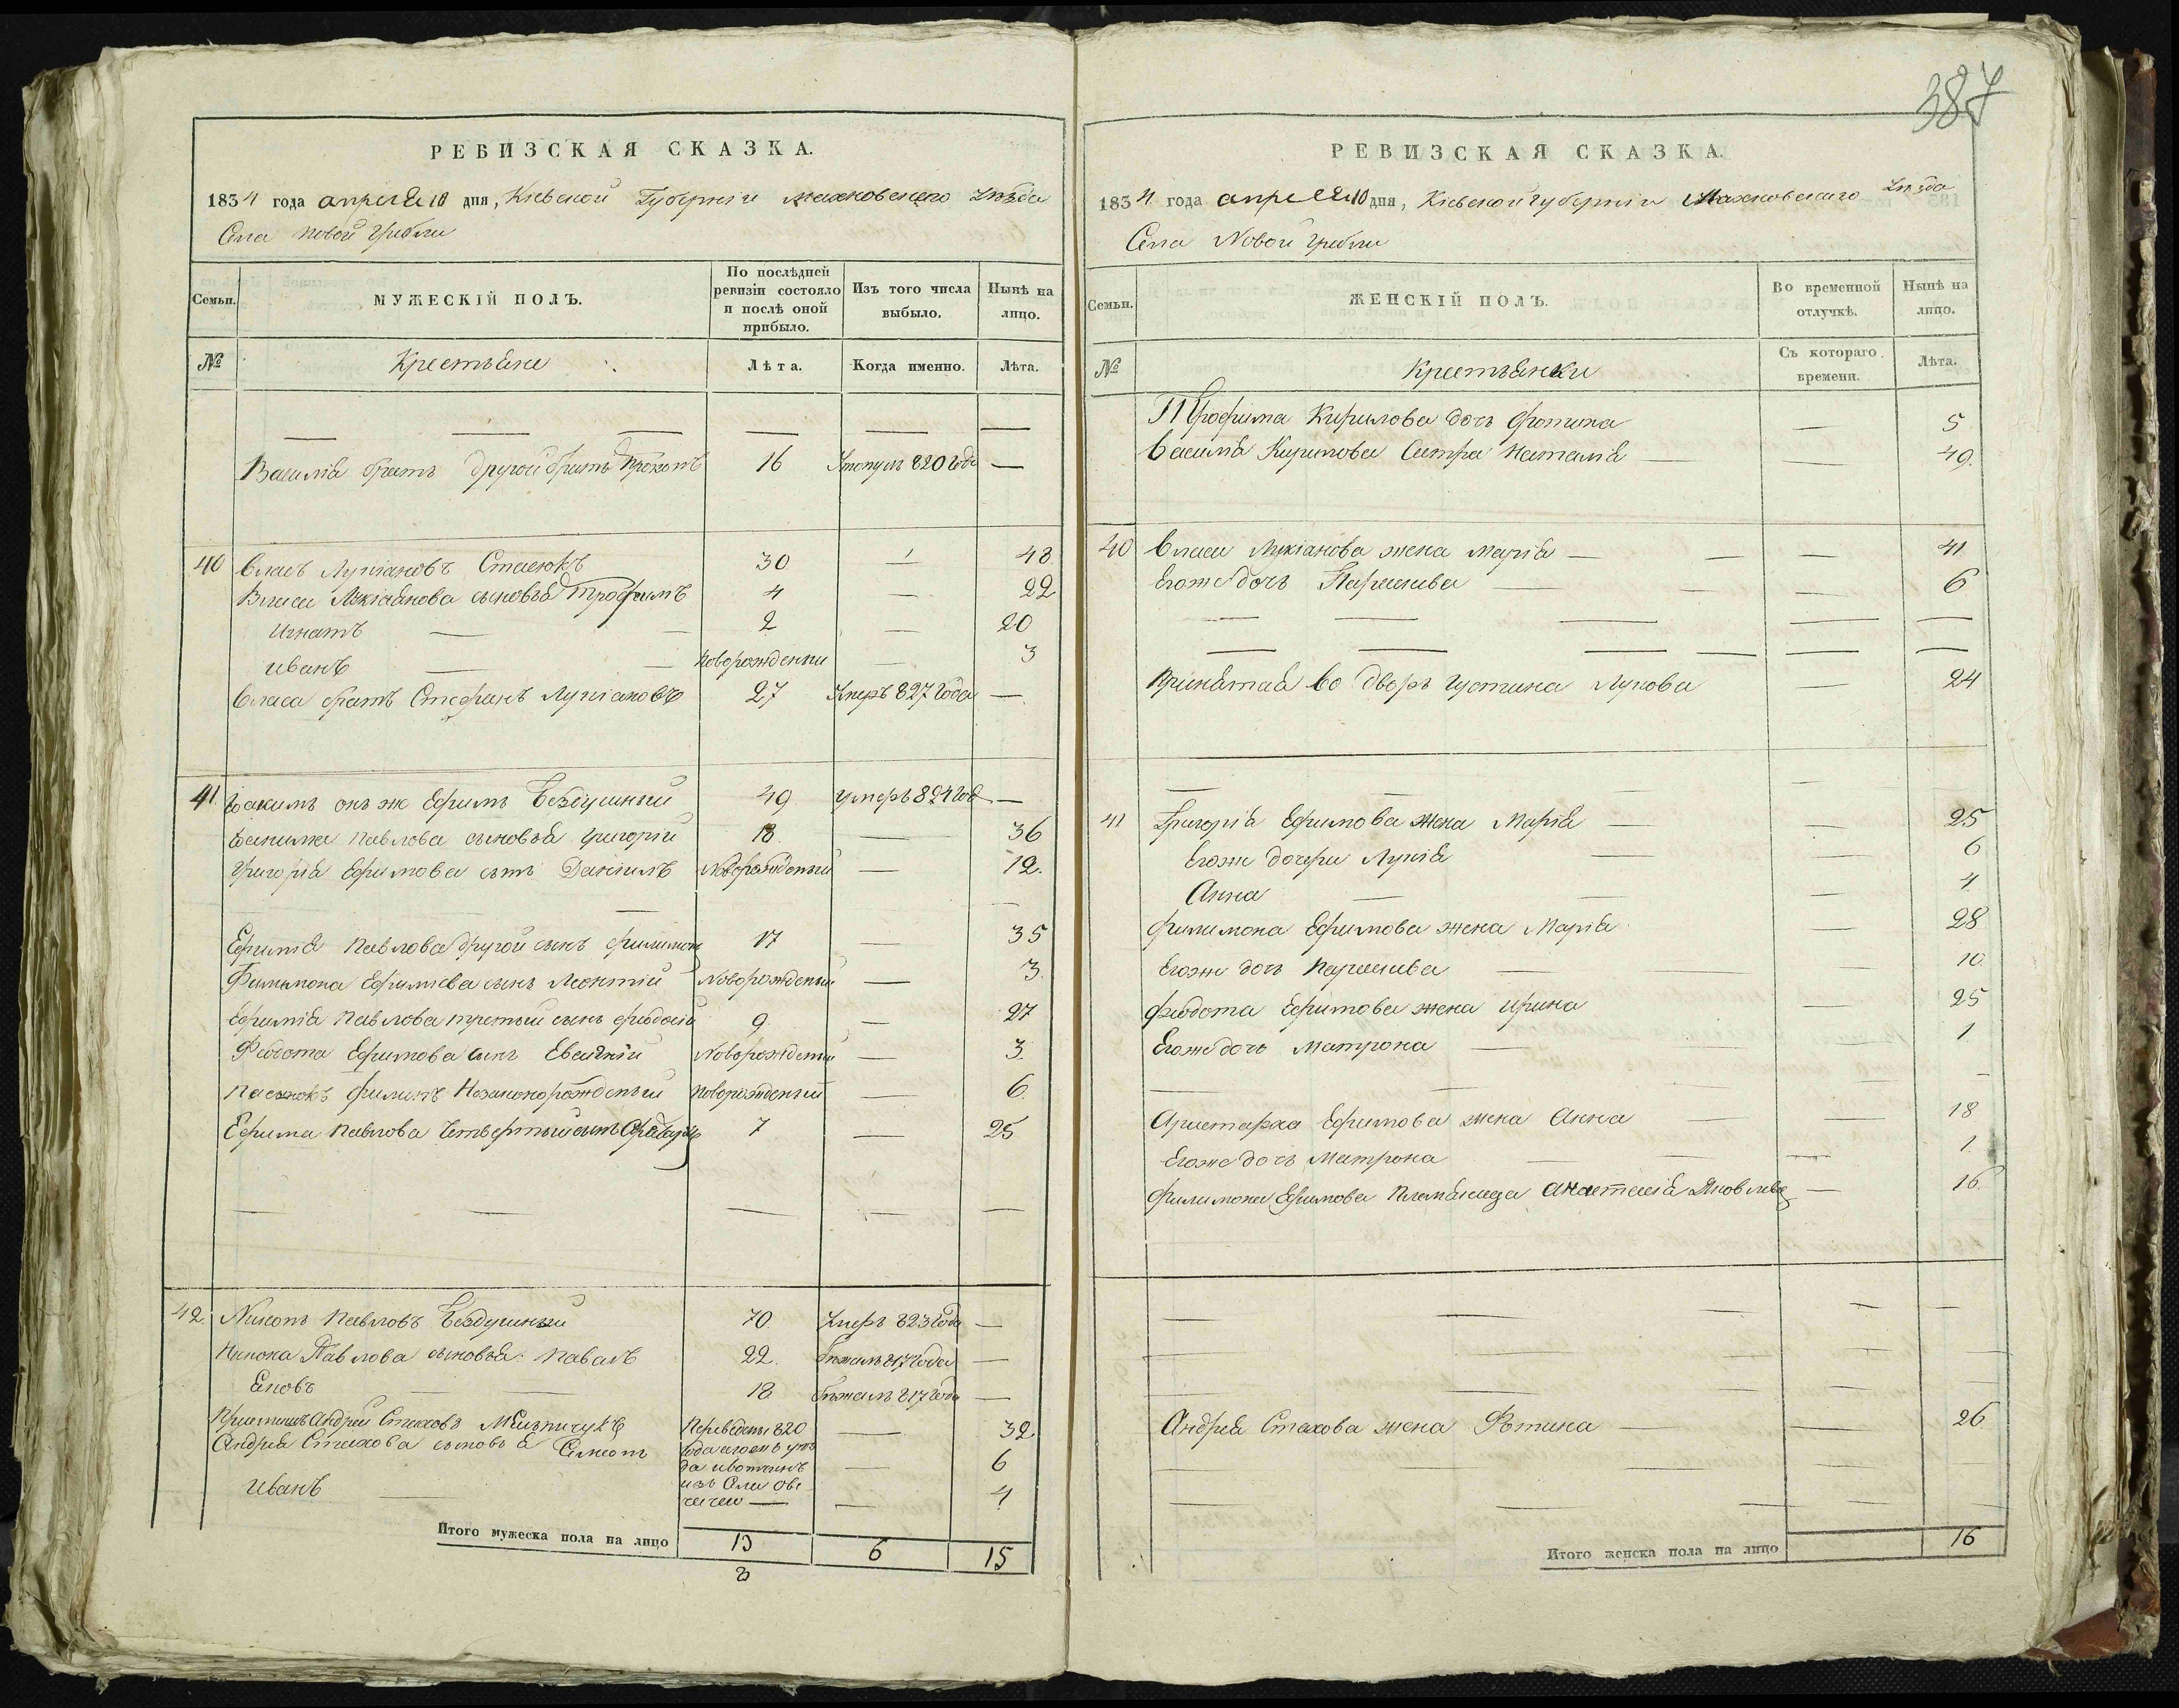 387
РЕВИЗСКАЯ СКАЗКА.
1834 года апреля 10 дня, Кіевской Губерніи Махновского уѣзда
Села Новой Гребли
Семьи.
МУЖЕСКІЙ ПОЛЪ.
По послѣдней ревизіи состояло и послѣ оной прибыло.
Изъ того числа выбыло.
Нынѣ на лицо.
№
Крестьяне
Лѣта.
Когда именно.
Лѣта.
Василія братъ другой братъ Прокопъ 16 Утонулъ 820 года —
40 Власъ Лукіановъ Стасюкъ 30 — 48
Власа Лукіанова сыновья Трофимъ 4 — 22
Игнатъ — 2 — 20
Иванъ — Новорожденны — 3
Власа братъ Стефанъ Лукіановъ 27 Умеръ 827 года —
41 онъ ж Ефимъ Бездушный 49 Умеръ 824 год —
Павлова сыновья Григорій 18 — 36
Григорія Ефимова сынъ Даніилъ Новорожденый — 12.
Ефимія Павлова другой сынъ Филимон 17 — 35
Филимона Ефиміева сынъ Леонтій Новорожденый — 3.
Ефимія Павлова третый сынъ 9 — 27
Федота Ефимова сынъ Новорожденый — 3.
Пасынокъ Филипъ Незаконорожденый Новорожденый — 6.
Ефима Павлова Четвертый сынъ 7 — 25
42. Никонъ Павловъ Бездушный 70 Умеръ 823 года —
Никона Павлова сыновья Павалъ 22. бѣжалъ 817 года —
Яковъ — 18 бѣжалъ 817 года —
Приемышъ Андрей Стаховъ Переведены 820 — 32.
Андрея Стахова сыновья Симеонъ года 6
изъ Села
Иванъ — 4
Итого мужеска пола на лицо 13 6 15
РЕВИЗСКАЯ СКАЗКА.
1834 года апреля 10 дня, Кіевской губерніи Махновскаго уѣзда
Села Новой Гребли
Семьи.
ЖЕНСКІЙ ПОЛЪ.
Во временной отлучкѣ.
Нынѣ на лицо.
№
Крестьянки
Съ котораго времени.
Лѣта.
Трофима Кирилова дочь Фотина — 5
Василія Кирилова Сестра Наталія — 49.
40 Власа Лукіанова жена Марія — 41
Егоже дочь Параскива — 6
Принятая во дворъ Густина Лукова — 24
41 Григорія Ефимова жена Марія — 25
Егоже дочери Лукія — 6
Анна — 4
Филимона Ефимова жена Марія — 28
Егоже дочь Параскива — 10
Федота Ефимова жена Ирина — 25
Егоже дочь Матрона — 1
Аристарха Ефимова жена Анна — 18
Егоже дочь Матрона — 1
Филимона Ефимова Племяница Анастасія Яковлева — 16
Андрея Стахова жена Фотина — 26
Итого женска пола на лицо 16